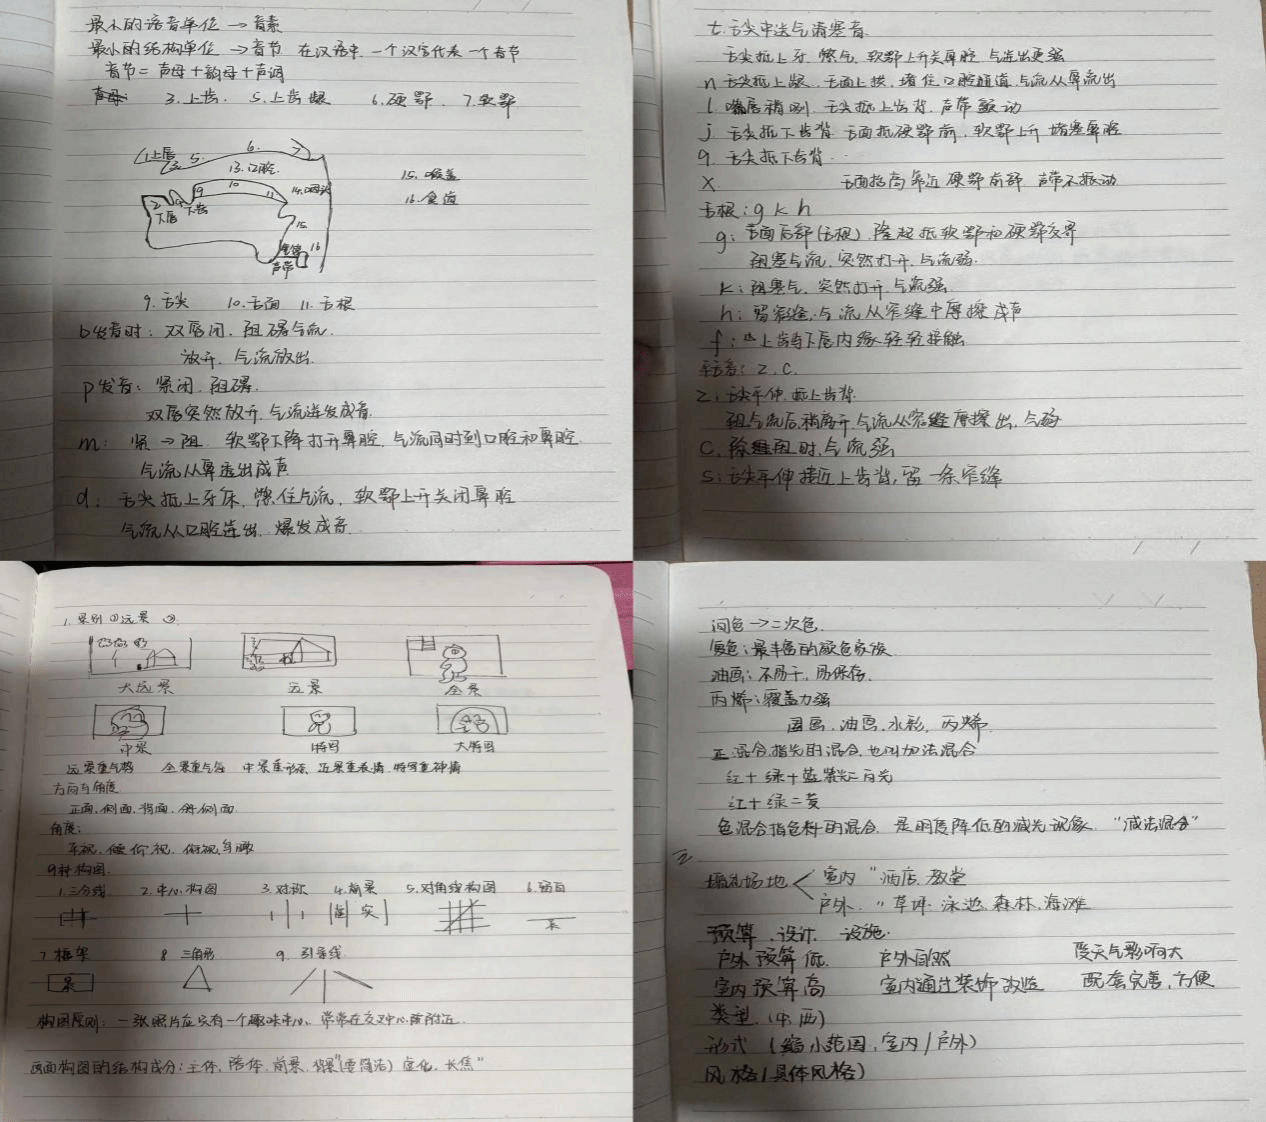 最小的语音单位 → 音素
最小的结构单位 → 音节 在汉语中,一个汉字代表一个音节
音节 = 声母 + 韵母 + 声调
声母: 3.上齿. 5.上齿龈 6.硬鄂. 7.软鄂
1.上唇 5. 6.
13.口腔.
9 10 11 14.咽头
2 下唇 下齿 15.
声带 16
15.喉盖
16.食道
9.舌尖 10.舌面 11.舌根
b发音时: 双唇闭, 阻碍气流.
放开, 气流放出.
p发音: 紧闭, 阻碍.
双唇突然放开,气流迸发成音.
m: 紧 → 阻. 软鄂下降打开鼻腔, 气流同时到口腔和鼻腔.
气流从鼻透出成声
d: 舌尖抵上牙床, 憋住气流, 软鄂上升关闭鼻腔
气流从口腔迸出, 爆发成音.
t.舌尖中送气清塞音.
舌尖抵上牙. 憋气, 软鄂上升关鼻腔. 气迸出更强
n 舌尖抵上龈. 舌面上拱, 堵住口腔通道,气流从鼻流出
l.嘴唇稍咧. 舌尖抵上齿背. 声带颤动
j.舌尖抵下齿背 舌面抵硬鄂前, 软鄂上升 堵塞鼻腔
q.舌尖抵下齿背...
x. 舌面抬高靠近硬鄂前部 声带不振动
舌根: g k h
g: 舌面后部(舌根),隆起抵软鄂和硬鄂交界
阻塞气流, 突然打开, 气流弱.
k: 阻塞气, 突然打开,气流强
h: 留窄缝,气流从窄缝中摩擦成声
f: 上齿与下唇内缘轻轻接触
平舌音: z, c.
z, 舌尖平伸,抵上齿背.
阻气流后,稍离开,气流从窄缝摩擦出,气弱
c. 除阻时,气流强
s: 舌尖平伸接近上齿背, 留一条窄缝
1.景别 ①远景 ②
大远景 远景 全景
中景 特写 大特写
远景重气势 全景重气氛 中景重形态 近景重表情, 特写重神情
方向与角度
正面,侧面,背面,斜侧面.
角度:
平视, 仰视, 俯视,鸟瞰
9种构图.
1.三分线 2.中心构图 3.对称 4.前景 5.对角线构图 6.留白
实
7.框架 8 三角形 9. 引导线
景
构图原则: 一张照片应只有一个趣味中心, 常常在交叉中心点附近.
画面构图的结构成分: 主体, 陪体, 前景, 背景"(要简洁) 虚化, 长焦"
间色 → 二次色.
复色: 最丰富的颜色家族
油画: 不易干, 易保存.
丙烯: 覆盖力强
国画, 油画, 水彩, 丙烯.
正混合指光的混合, 也叫加法混合
红+绿+蓝紫光=白光
红+绿=黄
色混合指色料的混合, 是明度降低的减光现象. "减法混合"
婚礼场地 室内 " 酒店, 教堂
户外. " 草坪. 泳池. 森林. 海滩
预算, 设计, 设施.
户外预算低. 户外自然 受天气影响大
室内预算高 室内通过装饰改造 配套完善,方便
类型. (中.西)
形式 (缩小范围, 室内/户外)
风格(具体风格)